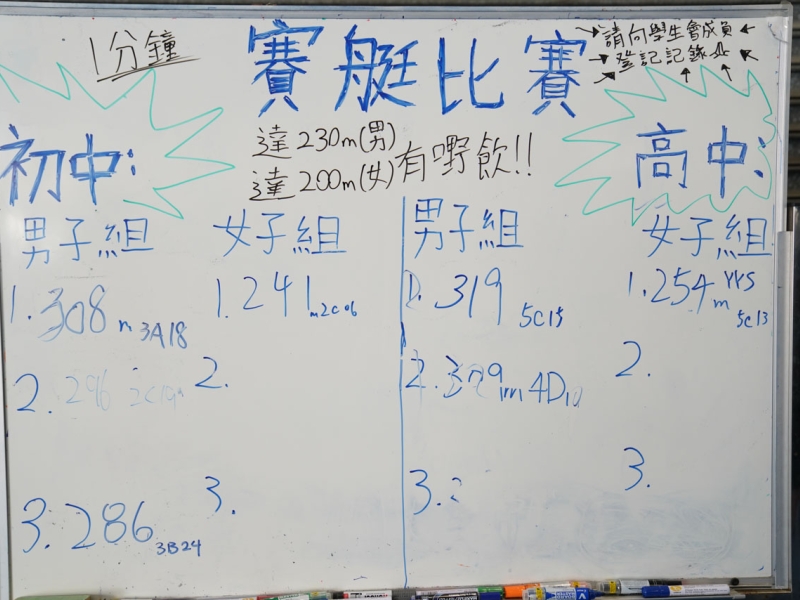 1分鐘
賽艇比賽
請向學生會成員
登記記錄
達230m(男)
達200m(女)
有嘢飲!!
初中:
男子組
1. 308 m 3A18
2. 296
3. 286 3B24
女子組
1. 241 m 2C06
2.
3.
高中:
男子組
1. 319 5C15
2. 309m 4D10
3.
女子組
1. 254 m YYS 5C13
2.
3.